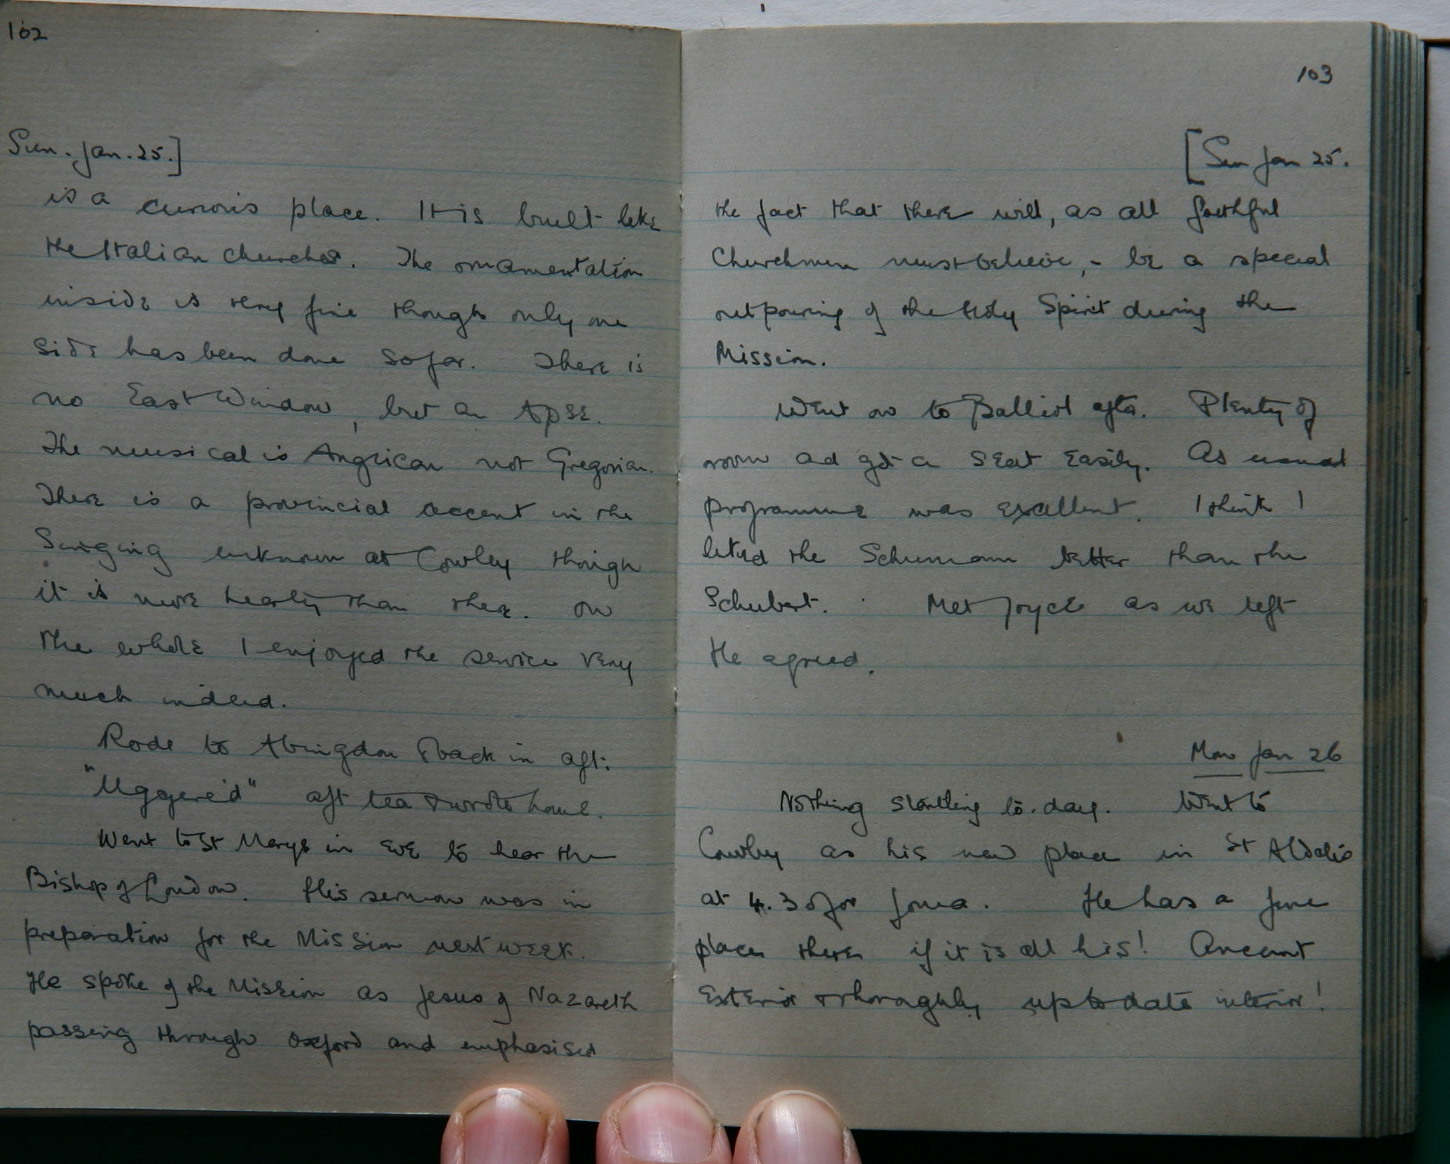 102
Sun. Jan. 25.]
is a curious place. It is built like
the Italian churches. The ornamentation
inside is very fine though only one
side has been done so far. There is
no East Window, but an Apse.
The musical is Anglican not Gregorian.
There is a provincial accent in the
Singing unknown at Cowley though
it is more hearty than there. On
the whole I enjoyed the service very
much indeed.
Rode to Abingdon & back in aft:
"Uggered" aft tea & wrote home.
Went to St Marys in eve to hear the
Bishop of London. His sermon was in
preparation for the Mission next week.
He spoke of the Mission as Jesus of Nazareth
passing through Oxford and emphasised
103
[Sun Jan 25.
the fact that there will, as all faithful
Churchmen must believe, - be a special
outpouring of the Holy Spirit during the
Mission.
Went on to Balliol after. Plenty of
room and got a seat easily. As usual
programme was excellent. I think I
liked the Schumann better than the
Schubert. Met Joyce as we left
He agreed.
Mon Jan 26
Nothing startling to-day. Went to
Cowley as his new place in St Aldate's
at 4.30 for . He has a fine
place there if it is all his! Ancient
Exterior & thoroughly up to date interior!